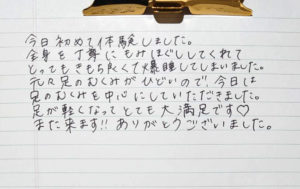 今日初めて体験しました。
全身を丁寧にもみほぐししてくれて
とってもきもち良くて爆睡してしまいました。
元々足のむくみがひどいので、今日は
足のむくみを中心にしていただきました。
足が軽くなってとても大満足です♡
また来ます!! ありがとうございました。